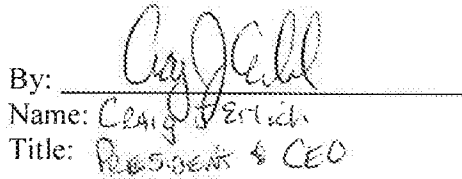 By:
Name: Craig J Erlich
Title: President & CEO